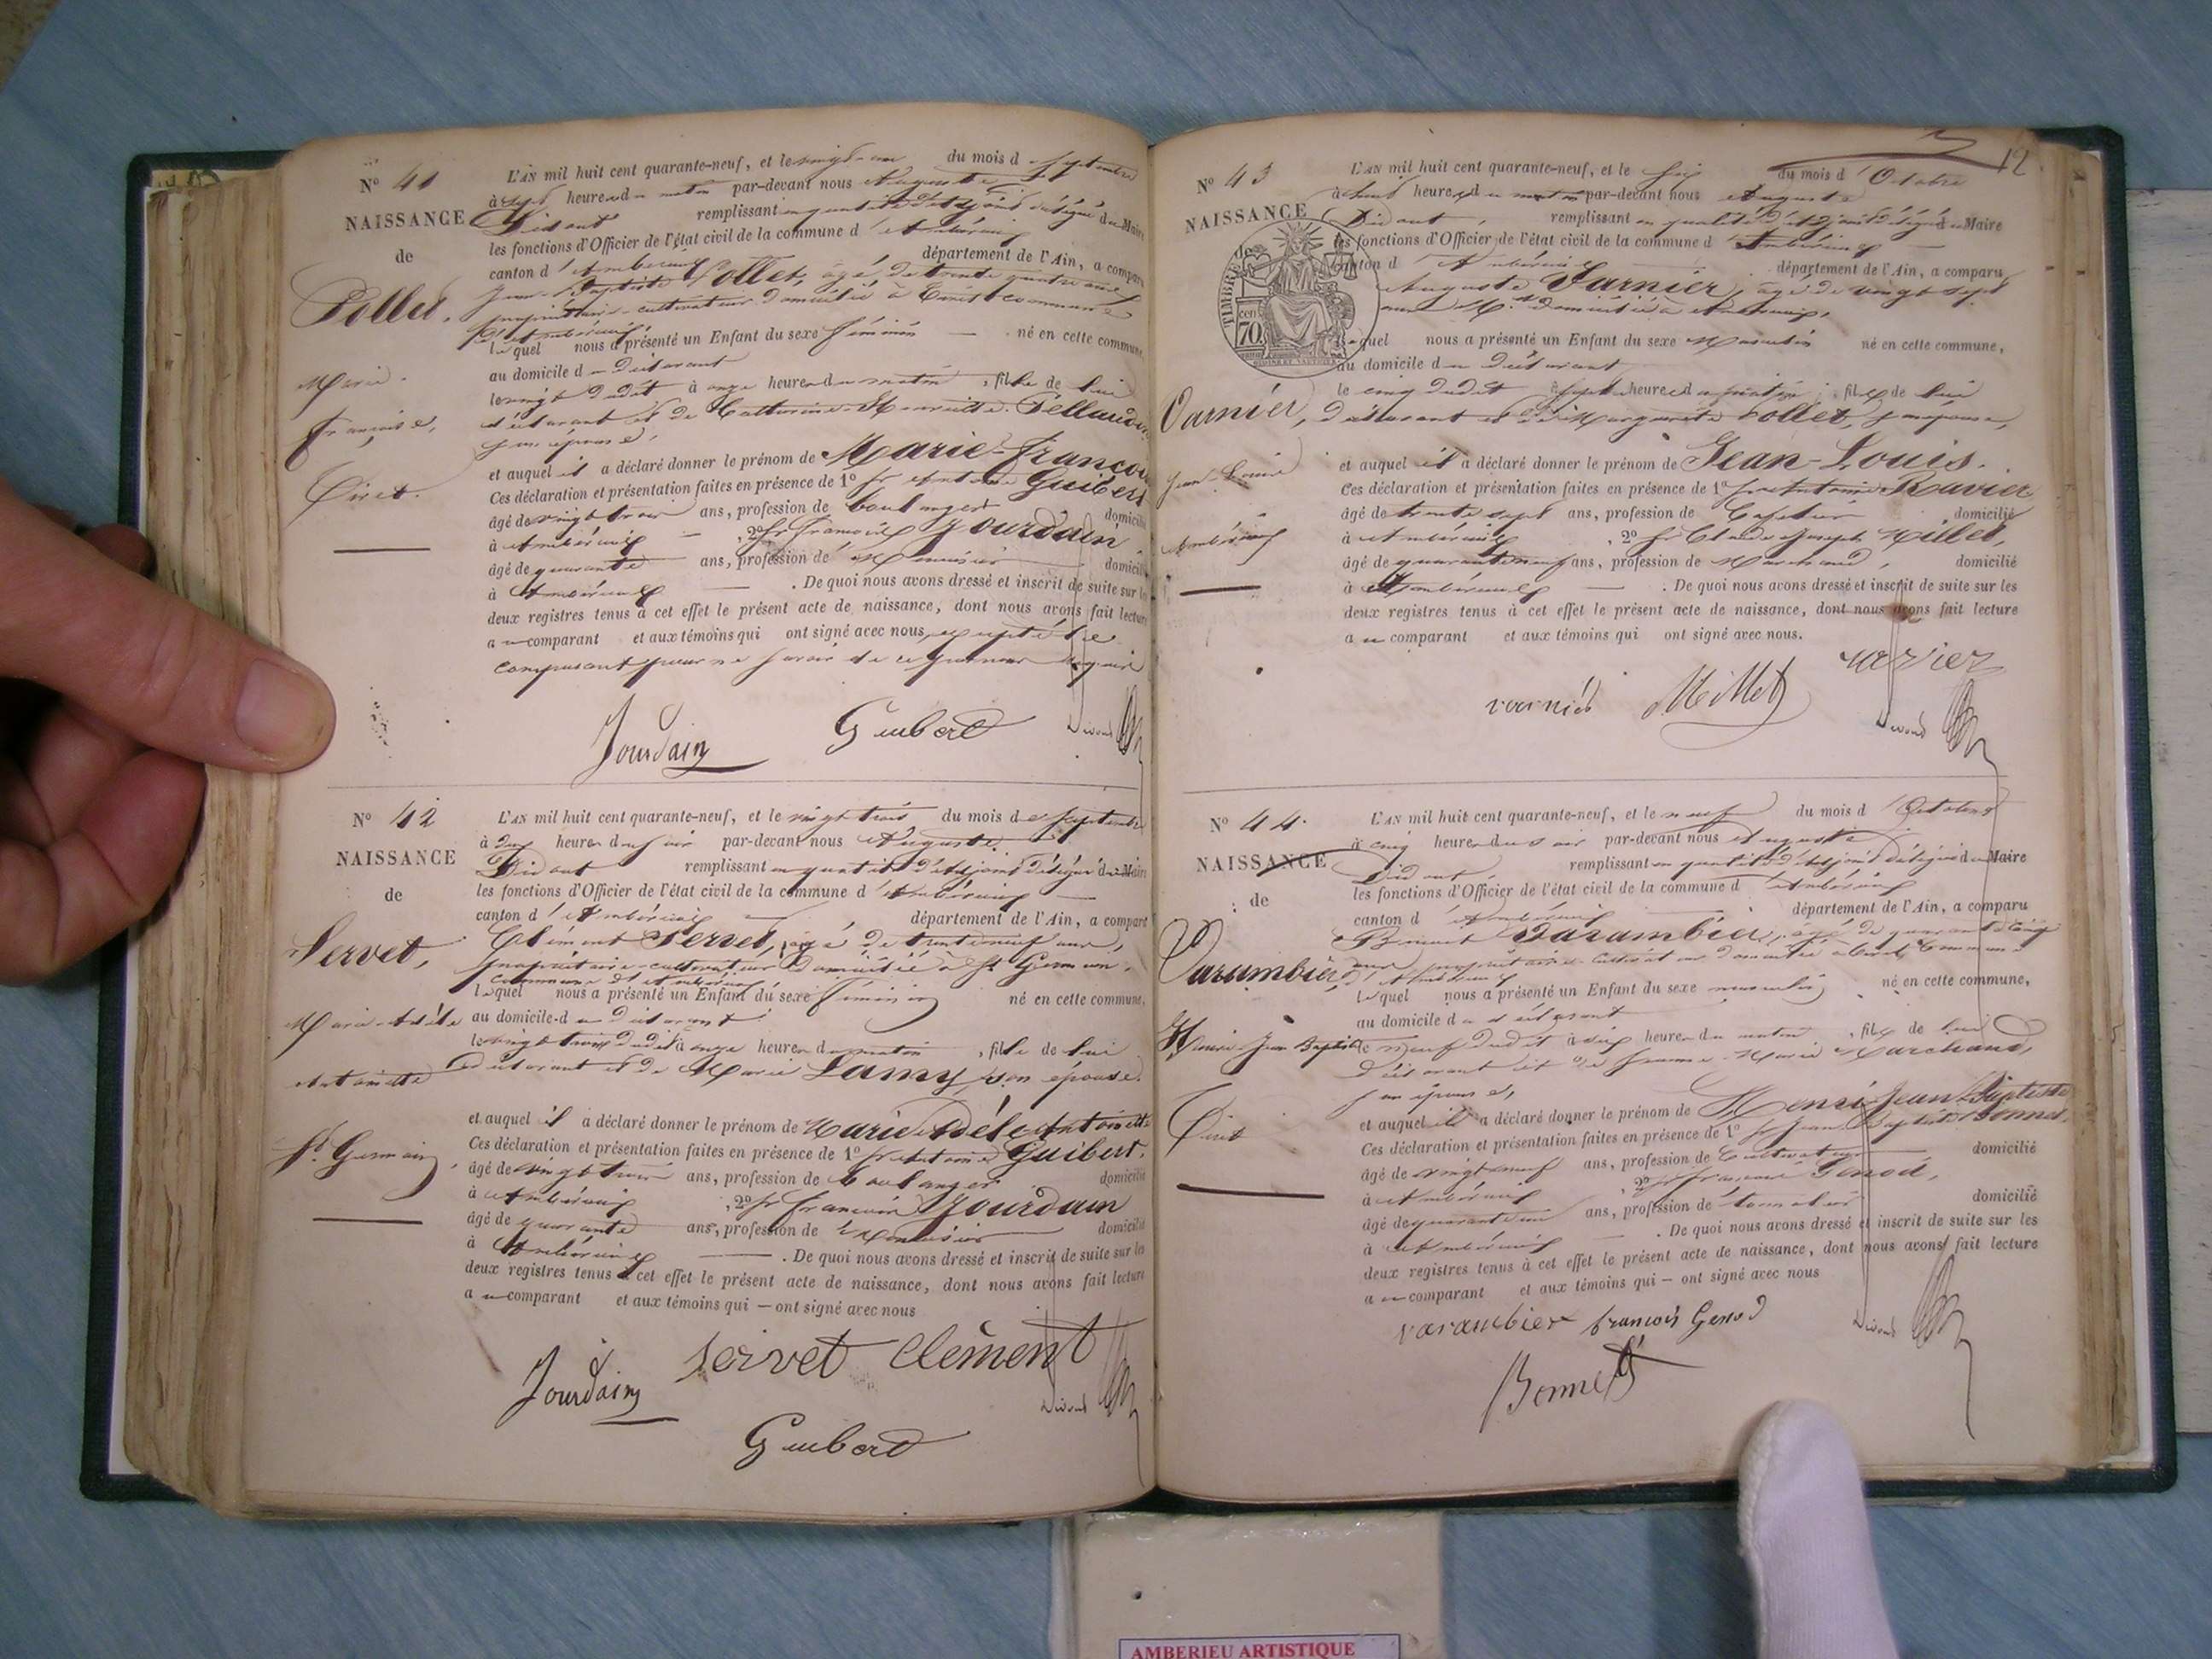 N° 41
NAISSANCE
de
Pollet.
Marie-
Françoise,
Tiret.
L'AN mil huit cent quarante-neuf, et le vingt-un du mois de Septembre
à sept heures du matin par-devant nous Auguste
Didout remplissant en qualité d'adjoint délégué du Maire
les fonctions d'Officier de l'état civil de la commune d'Ambérieux
canton d'Ambérieux département de l'Ain, a comparu
Jean-Baptiste Pollet, âgé de trente quatre ans,
propriétaire-cultivateur domicilié à Tiret commune
d'Ambérieux,
lequel nous a présenté un Enfant du sexe féminin né en cette commune,
au domicile du déclarant
le vingt dudit à onze heures du matin, fille de lui
déclarant et de Catherine
son épouse,
et auquel il a déclaré donner le prénom de Marie-Françoise
Ces déclaration et présentation faites en présence de 1° Sr Antoine Guibert
âgé de vingt trois ans, profession de boulanger domicilié
à Ambérieux, 2° Sr François Jourdain
âgé de quarante ans, profession de Menuisier domicilié
à Ambérieux. De quoi nous avons dressé et inscrit de suite sur les
deux registres tenus à cet effet le présent acte de naissance, dont nous avons fait lecture
au comparant et aux témoins qui ont signé avec nous, excepté le
comparant pour ne savoir de ce qu'enquis
Jourdain Guibert Didout
N° 42
NAISSANCE
de
Servet,
Marie-Adèle
Antoinette
St Germain,
L'AN mil huit cent quarante-neuf, et le vingt trois du mois de Septembre
à deux heures du soir par-devant nous Auguste
Didout remplissant en qualité d'adjoint délégué du Maire
les fonctions d'Officier de l'état civil de la commune d'Ambérieux
canton d'Ambérieux département de l'Ain, a comparu
Clément Servet, âgé de trente neuf ans,
propriétaire-cultivateur domicilié à St Germain,
commune d'Ambérieux
lequel nous a présenté un Enfant du sexe féminin né en cette commune,
au domicile du déclarant
le vingt trois dudit à onze heures du matin, fille de lui
déclarant et de Marie Lamy, son épouse.
et auquel il a déclaré donner le prénom de Marie Adèle Antoinette
Ces déclaration et présentation faites en présence de 1° Sr Antoine Guibert,
âgé de vingt trois ans, profession de boulanger domicilié
à Ambérieux, 2° Sr François Jourdain
âgé de quarante ans, profession de Menuisier domicilié
à Ambérieux. De quoi nous avons dressé et inscrit de suite sur les
deux registres tenus à cet effet le présent acte de naissance, dont nous avons fait lecture
au comparant et aux témoins qui — ont signé avec nous
Jourdain servet Clément Didout
Guibert
12
N° 43
NAISSANCE
TIMBRE
70 cen
Varnier,
Jean-Louis
Ambérieux
L'AN mil huit cent quarante-neuf, et le six du mois d'Octobre
à huit heures du matin par-devant nous Auguste
Didout, remplissant en qualité d'adjoint délégué du Maire
les fonctions d'Officier de l'état civil de la commune d'Ambérieux
canton d'Ambérieux département de l'Ain, a comparu
Auguste Varnier, âgé de vingt sept
ans, domicilié à Ambérieux,
lequel nous a présenté un Enfant du sexe Masculin né en cette commune,
au domicile du déclarant
le cinq dudit à sept heures du matin, fils de lui
déclarant et de Marguerite Pollet, son épouse,
et auquel il a déclaré donner le prénom de Jean-Louis.
Ces déclaration et présentation faites en présence de 1° Sr Antoine Ravier
âgé de trente sept ans, profession de Cafetier domicilié
à Ambérieux, 2° Sr Claude Joseph Millet,
âgé de quarante neuf ans, profession de Marchand, domicilié
à Ambérieux. De quoi nous avons dressé et inscrit de suite sur les
deux registres tenus à cet effet le présent acte de naissance, dont nous avons fait lecture
au comparant et aux témoins qui ont signé avec nous.
ravier
varnier Millet Didout
N° 44.
NAISSANCE
de
Varambier
Henri-Jean Baptiste
Tiret
L'AN mil huit cent quarante-neuf, et le neuf du mois d'Octobre
à cinq heures du soir par-devant nous Auguste
Didout remplissant en qualité d'adjoint délégué du Maire
les fonctions d'Officier de l'état civil de la commune d'Ambérieux
canton d'Ambérieux département de l'Ain, a comparu
Benoit Varambier, âgé de quarante cinq
ans, propriétaire-cultivateur domicilié à Tiret, commune
d'Ambérieux
lequel nous a présenté un Enfant du sexe masculin né en cette commune,
au domicile du déclarant
le neuf dudit à dix heures du matin, fils de lui
déclarant et de Jeanne-Marie Marchand,
son épouse,
et auquel il a déclaré donner le prénom de Henri-Jean Baptiste
Ces déclaration et présentation faites en présence de 1° Sr Jean-Baptiste Bonnet,
âgé de vingt neuf ans, profession de Cultivateur domicilié
à Ambérieux 2° Sr François Genod,
âgé de quarante un ans, profession de tonnelier domicilié
à Ambérieux. De quoi nous avons dressé et inscrit de suite sur les
deux registres tenus à cet effet le présent acte de naissance, dont nous avons fait lecture
au comparant et aux témoins qui — ont signé avec nous
varambier françois Genod Didout
Bonnet
AMBERIEU ARTISTIQUE